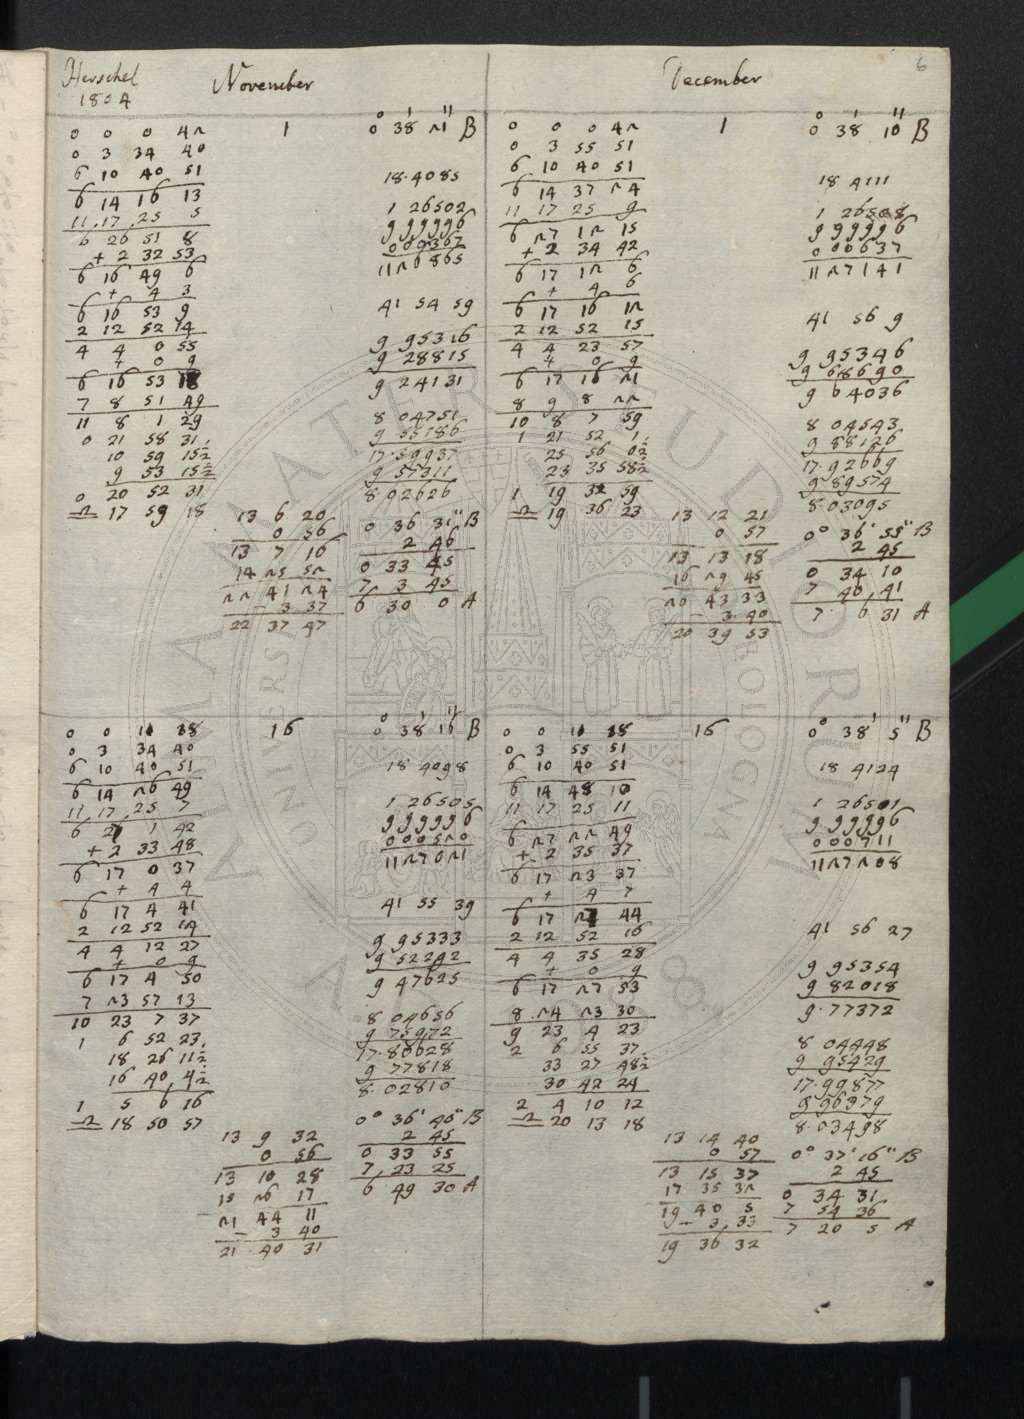 Herschel
1804
November
December
6
0 0 0 42
0 3 34 40
6 10 40 51
6 14 16 13
11 17 25 5
6 26 51 8
+ 2 32 53
6 16 49 6
+ 4 3
6 16 53 9
2 12 52 14
4 4 0 55
+ 0 9
6 16 53 18
7 8 51 49
11 8 1 29
0 21 58 31
10 59 15½
9 53 15½
0 20 52 31
♎ 17 59 18
1
13 6 20
0 56
13 7 16
14 25 52
22 41 24
– 3 37
22 37 47
0° 38' 21" B
18.4085
1 26502
9 99996
000367
1126865
41 54 59
9 95316
9 28815
9 24131
8 04751
9 55186
17.59937
9 57311
8.02626
0 36 31" B
2 46
0 33 45
7 3 45
6 30 0 A
0 0 0 42
0 3 55 51
6 10 40 51
6 14 37 24
11 17 25 9
6 27 12 15
+ 2 34 42
6 17 12 6
+ 4 6
6 17 16 12
2 12 52 15
4 4 23 57
+ 0 9
6 17 16 21
8 9 8 22
10 8 7 59
1 21 52 1
25 56 0½
23 35 58½
1 19 32 59
♎ 19 36 23
1
13 12 21
0 57
13 13 18
16 29 45
20 43 33
– 3 40
20 39 53
0° 38' 10" B
18 4111
1 26508
9 99996
000637
1127141
41 56 9
9 95346
9 68690
9 64036
8 04543
9 88126
17.92669
9 89574
8.03095
0° 36' 55" B
2 45
0 34 10
7 40 41
7 6 31 A
0 0 11 18
0 3 34 40
6 10 40 51
6 14 26 49
11 17 25 7
6 27 1 42
+ 2 33 48
6 17 0 37
+ 4 4
6 17 4 41
2 12 52 14
4 4 12 27
+ 0 9
6 17 4 50
7 23 57 13
10 23 7 37
1 6 52 23
18 26 11½
16 40 4½
1 5 6 16
♎ 18 50 57
16
13 9 32
0 56
13 10 28
15 26 17
21 44 11
– 3 40
21 40 31
0° 38' 16" B
18 4098
1 26505
9 99996
000520
1127021
41 55 39
9 95333
9 52292
9 47625
8 04656
9 75972
17.80628
9 77818
8.02810
0° 36' 40" B
2 45
0 33 55
7 23 25
6 49 30 A
0 0 11 18
0 3 55 51
6 10 40 51
6 14 48 10
11 17 25 11
6 27 22 49
+ 2 35 37
6 17 23 37
+ 4 7
6 17 27 44
2 12 52 16
4 4 35 28
+ 0 9
6 17 27 53
8 24 23 30
9 23 4 23
2 6 55 37
33 27 48½
30 42 24
2 4 10 12
♎ 20 13 18
16
13 14 40
0 57
13 15 37
17 35 32
19 40 5
– 3 33
19 36 32
0° 38' 5" B
18 4124
1 26501
9 99996
000711
1127208
41 56 27
9 95354
9 82018
9.77372
8 04448
9 95429
17.99877
9 96379
8.03498
0° 37' 16" B
2 45
0 34 31
7 54 36
7 20 5 A
ALMA MATER STUDIORUM